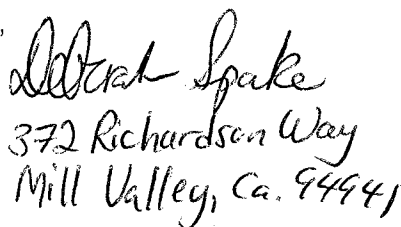 Deborah Spake
372 Richardson Way
Mill Valley, Ca. 94941